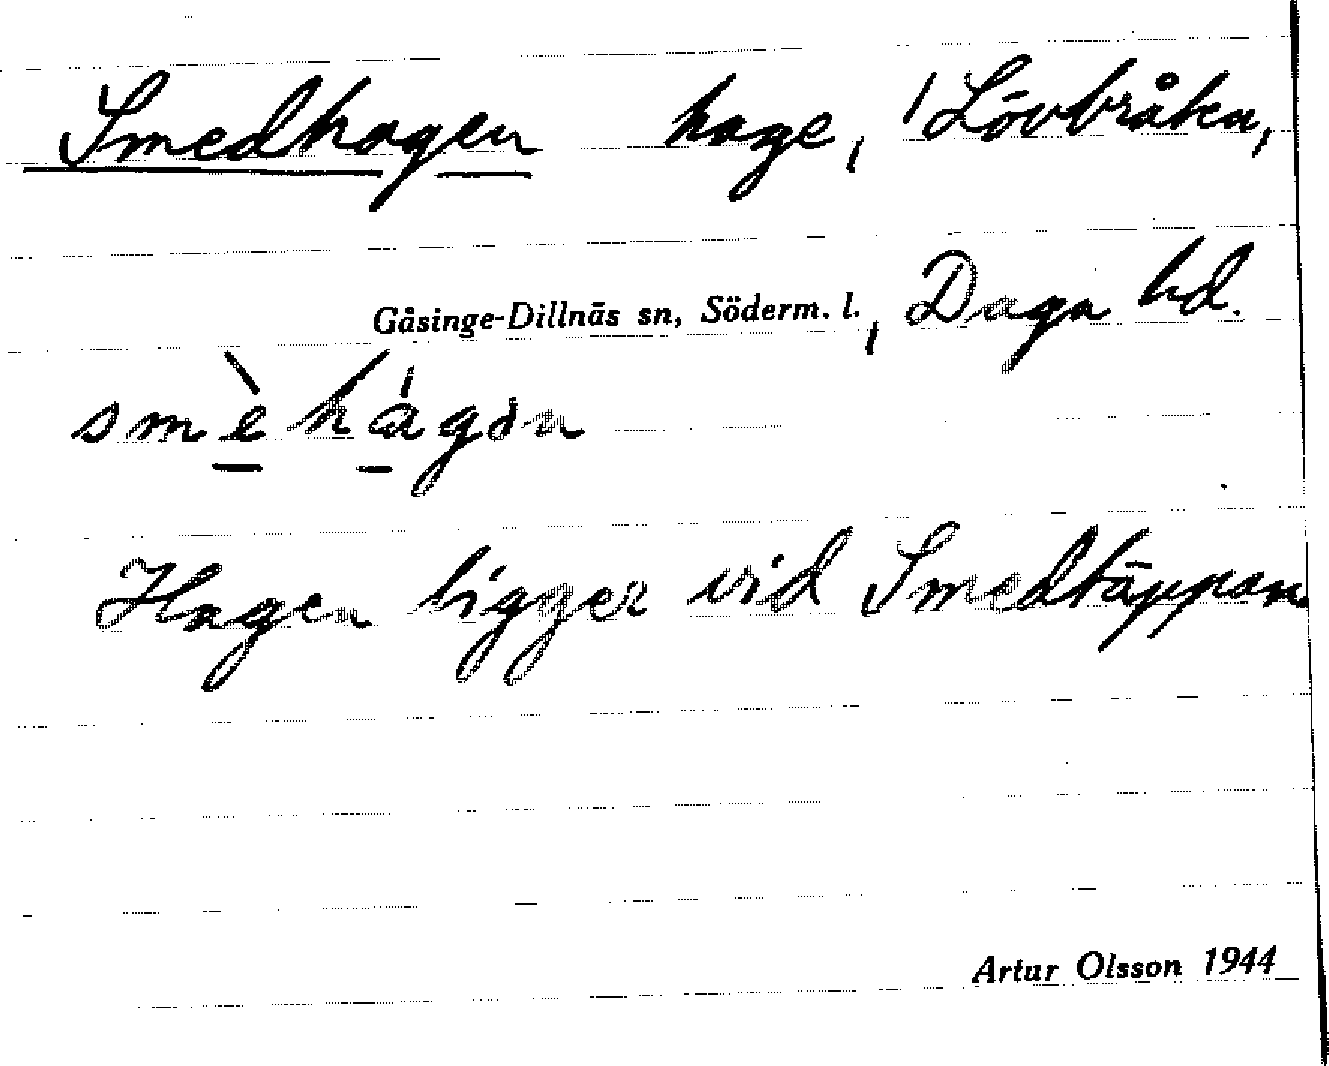 Smedhagen hage, 1 Lövbråten,
Gåsinge-Dillnäs sn, Söderm. l., Daga hd.
smèhágan
Hagen ligger vid Smedtäppan
Artur Olsson 1944